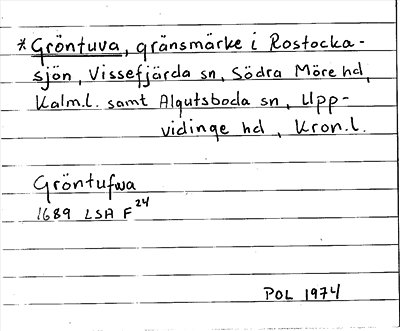 *Gröntuva, gränsmärke i Rostocka-
sjön, Vissefjärda sn, Södra Möre hd,
Kalm.l. samt Algutsboda sn, Upp-
vidinge hd, Kron.l.
Gröntufwa
1689 LSA F24
POL 1974